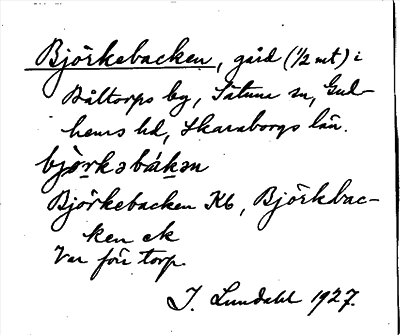 Björkebacken, gård (1/2 mt) i
Båltorps by, Sätuna sn, Gud-
hems hd, Skaraborgs län.
bjö̱rkəbákən
Björkebacken Kb, Björkbac-
ken ek
Var förr torp.
I. Lundahl 1927.